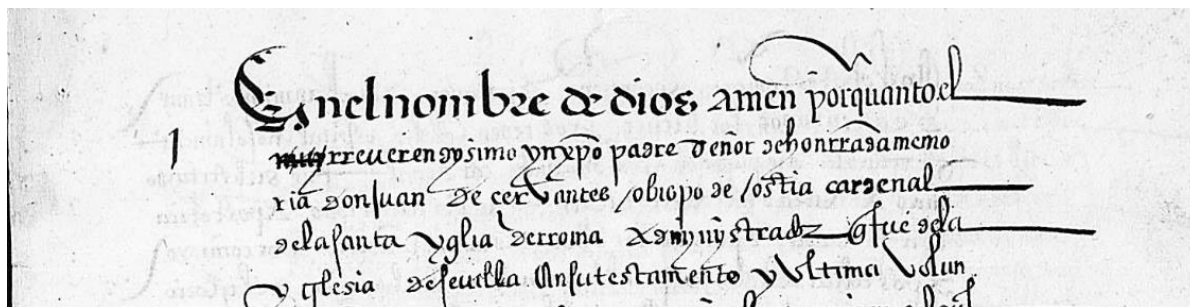 En el nombre de dios amen porquanto el
1 muy rreverendysimo yn xpo padre señor de honrrada memo
ria don juan de cervantes / obispo de / ostia cardenal
de la santa yglia de rroma admynystrador q fue de la
yglesia de sevilla en su testamento y ultima volun